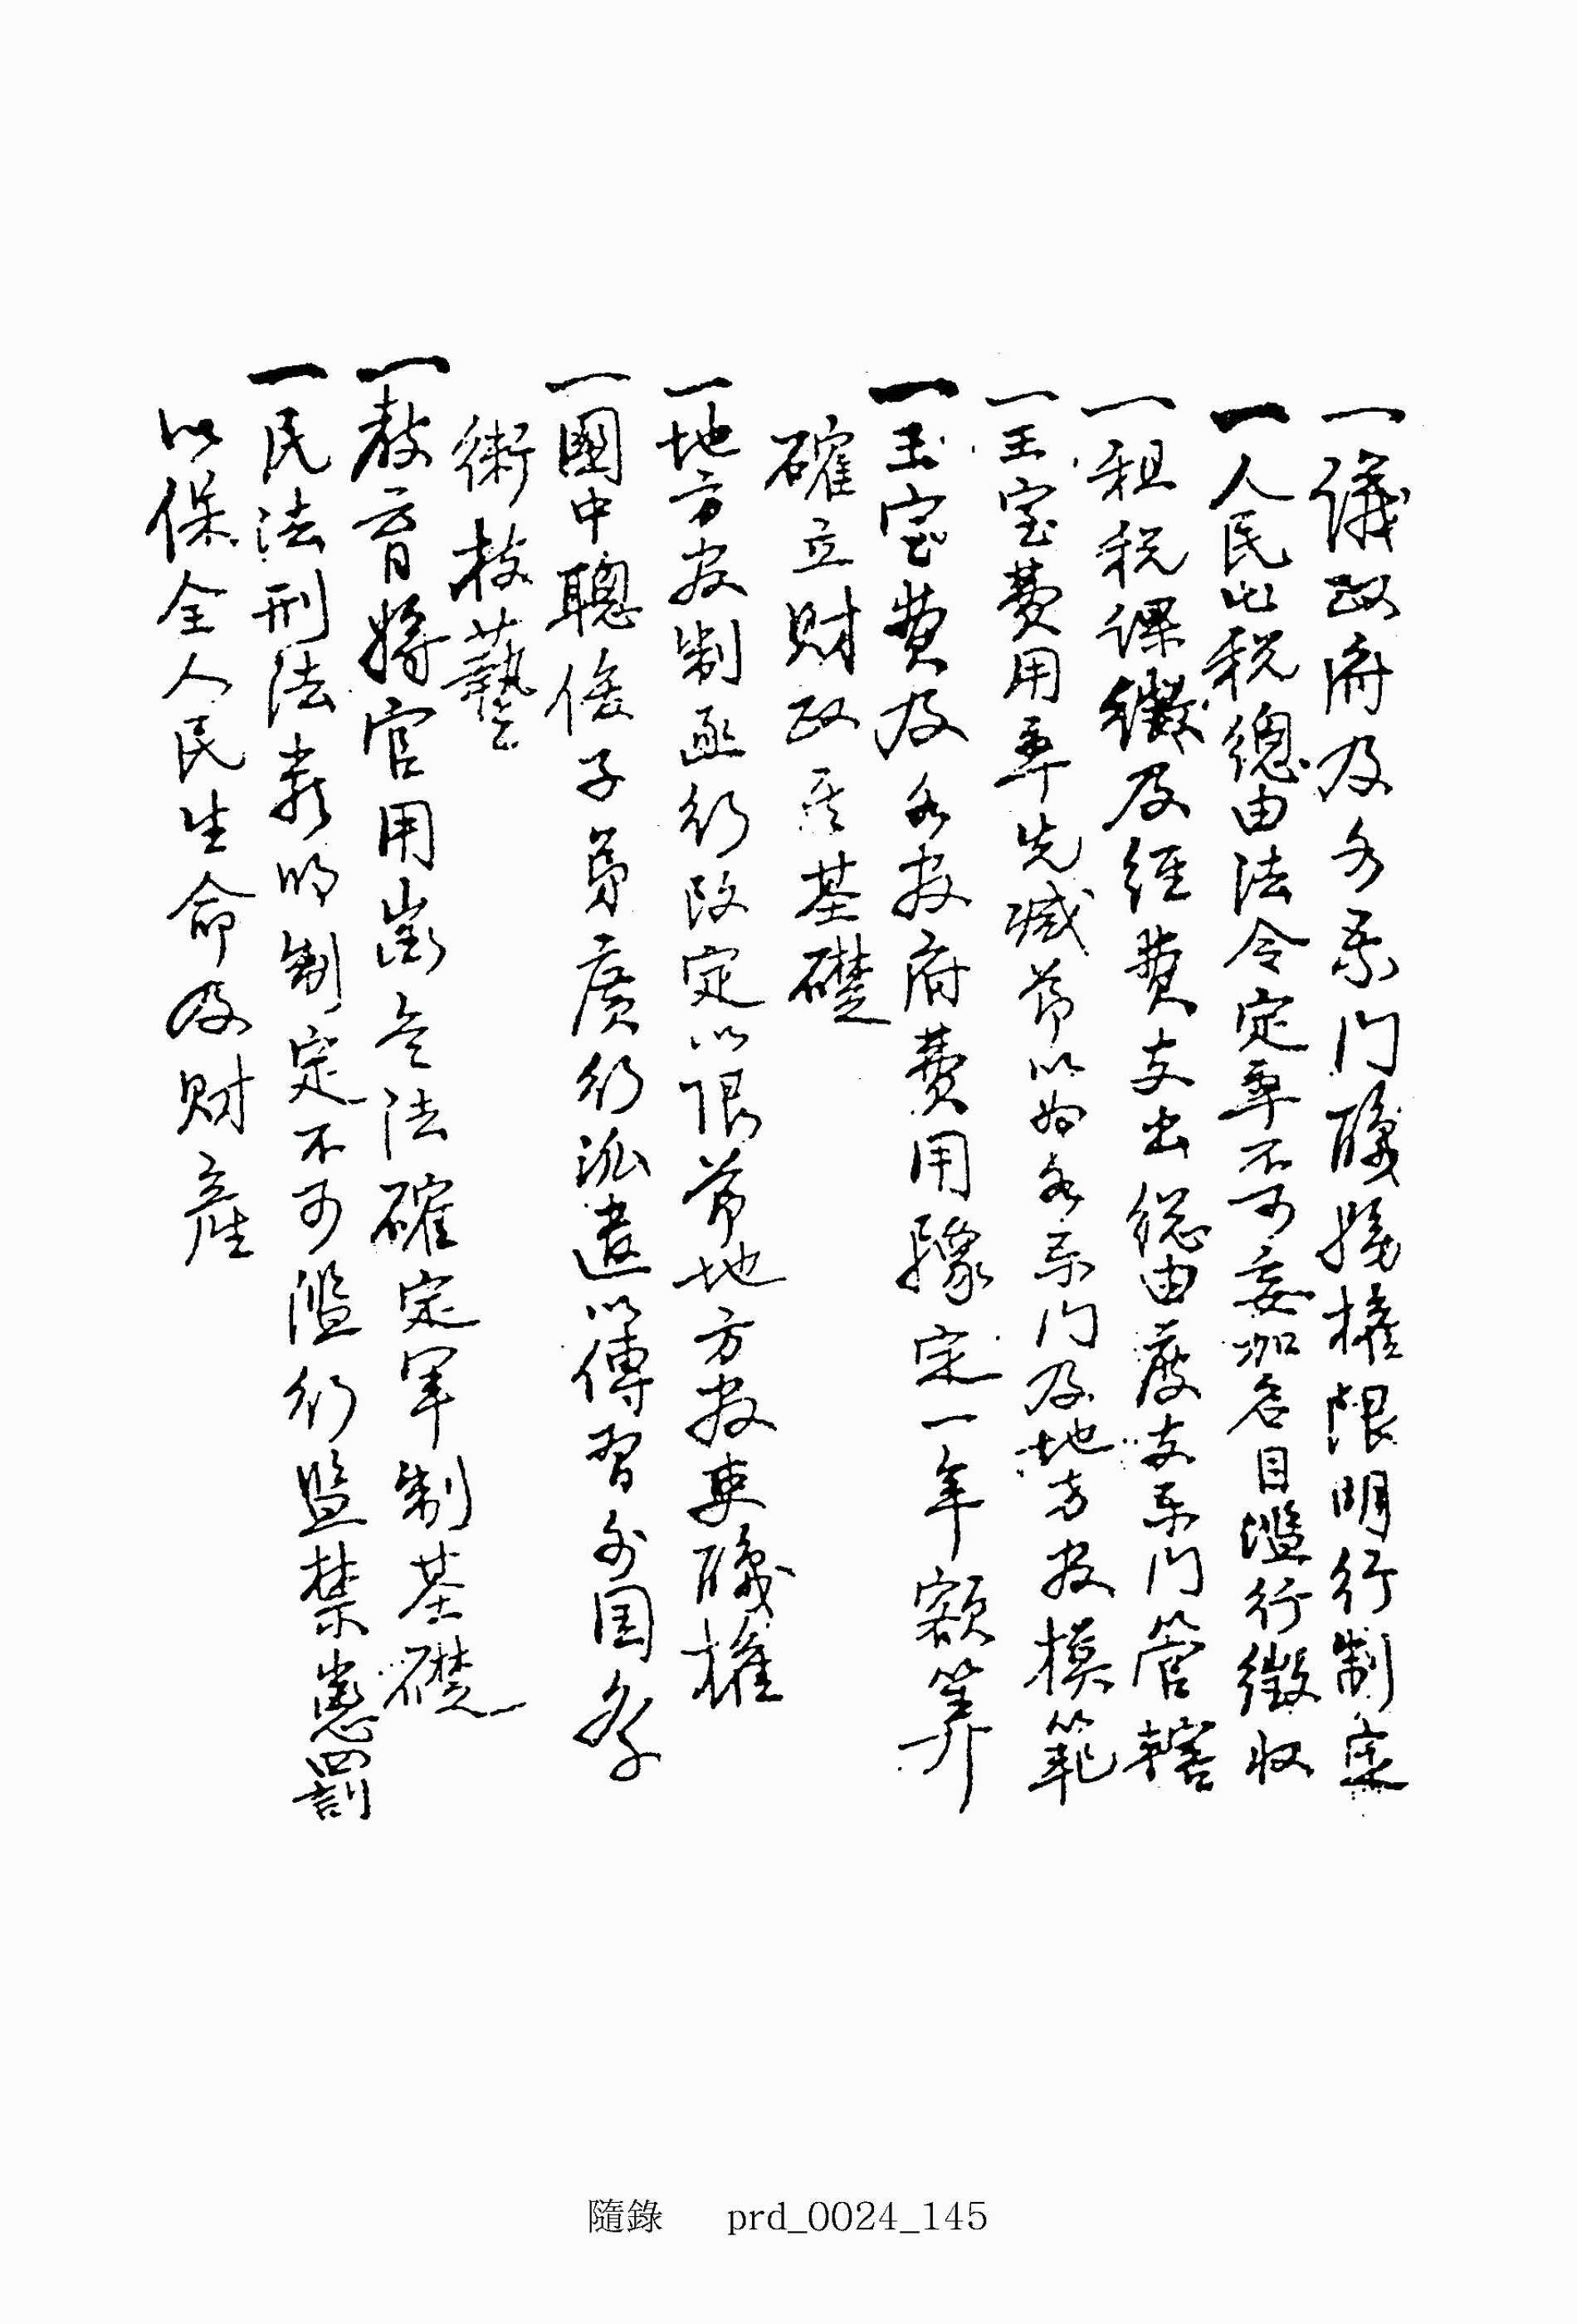 一議政府及各衙門職務權限明行制定
一人民出稅總由法令定率不可妄加名目濫行徵收
一租稅課徵及經費支出總由度支衙門管轄
一王室費用率先減節以爲各衙門及地方官模範
一王室費及各官府費用豫定一年額算
確立財政基礎
一地方官制亟行改定以限節地方官吏職權
一國中聰俊子弟廣行派遣以傳習外国學
術技藝
一教育將官用徵兵法確定軍制基礎
一民法刑法嚴明制定不可濫行監禁懲罰
以保全人民生命及財產
隨錄 prd_0024_145